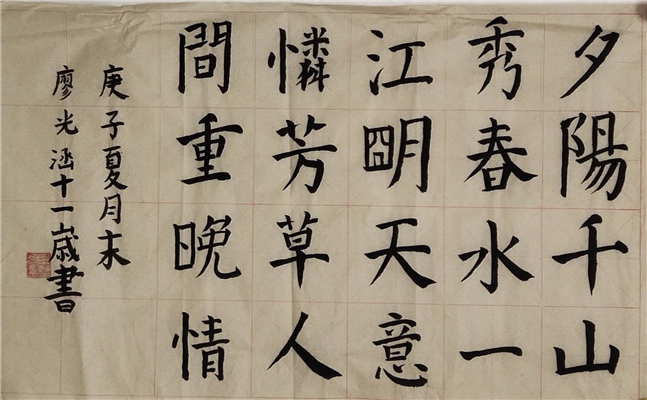 夕陽千山
秀春水一
江朙天意
憐芳草人
間重晚情
庚子夏月末
廖光涵十一歲書